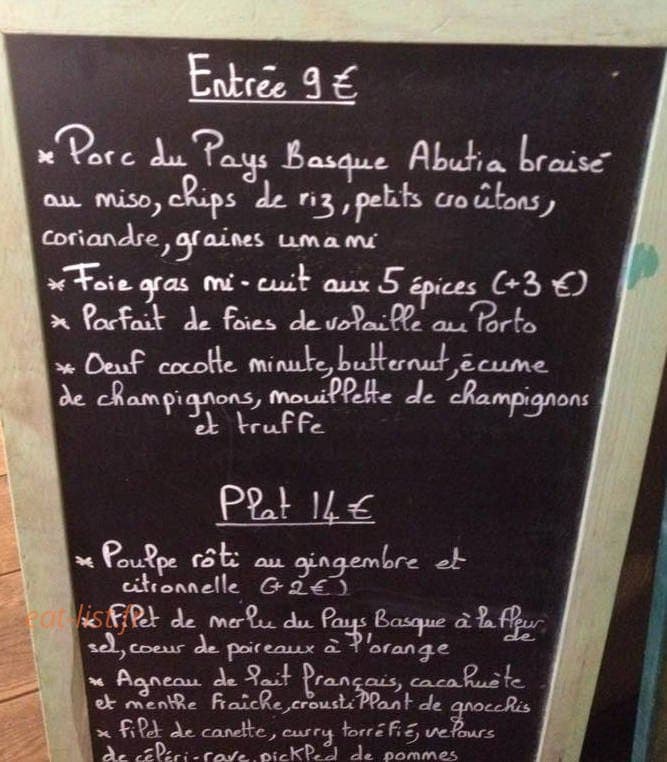 Entrée 9 €
* Porc du Pays Basque Abutia braisé
au miso, chips de riz, petits croûtons,
coriandre, graines umami
* Foie gras mi-cuit aux 5 épices (+3 €)
* Parfait de foies de volaille au Porto
* Oeuf cocotte minute, butternut, écume
de champignons, mouillette de champignons
et truffe
Plat 14 €
* Poulpe rôti au gingembre et
citronnelle (+2€)
* Filet de merlu du Pays Basque à la fleur
de
sel, coeur de poireaux à l'orange
* Agneau de lait français, cacahuète
et menthe fraîche, croustillant de gnocchis
* filet de canette, curry torréfié, velours
de céleri-rave, pickled de pommes